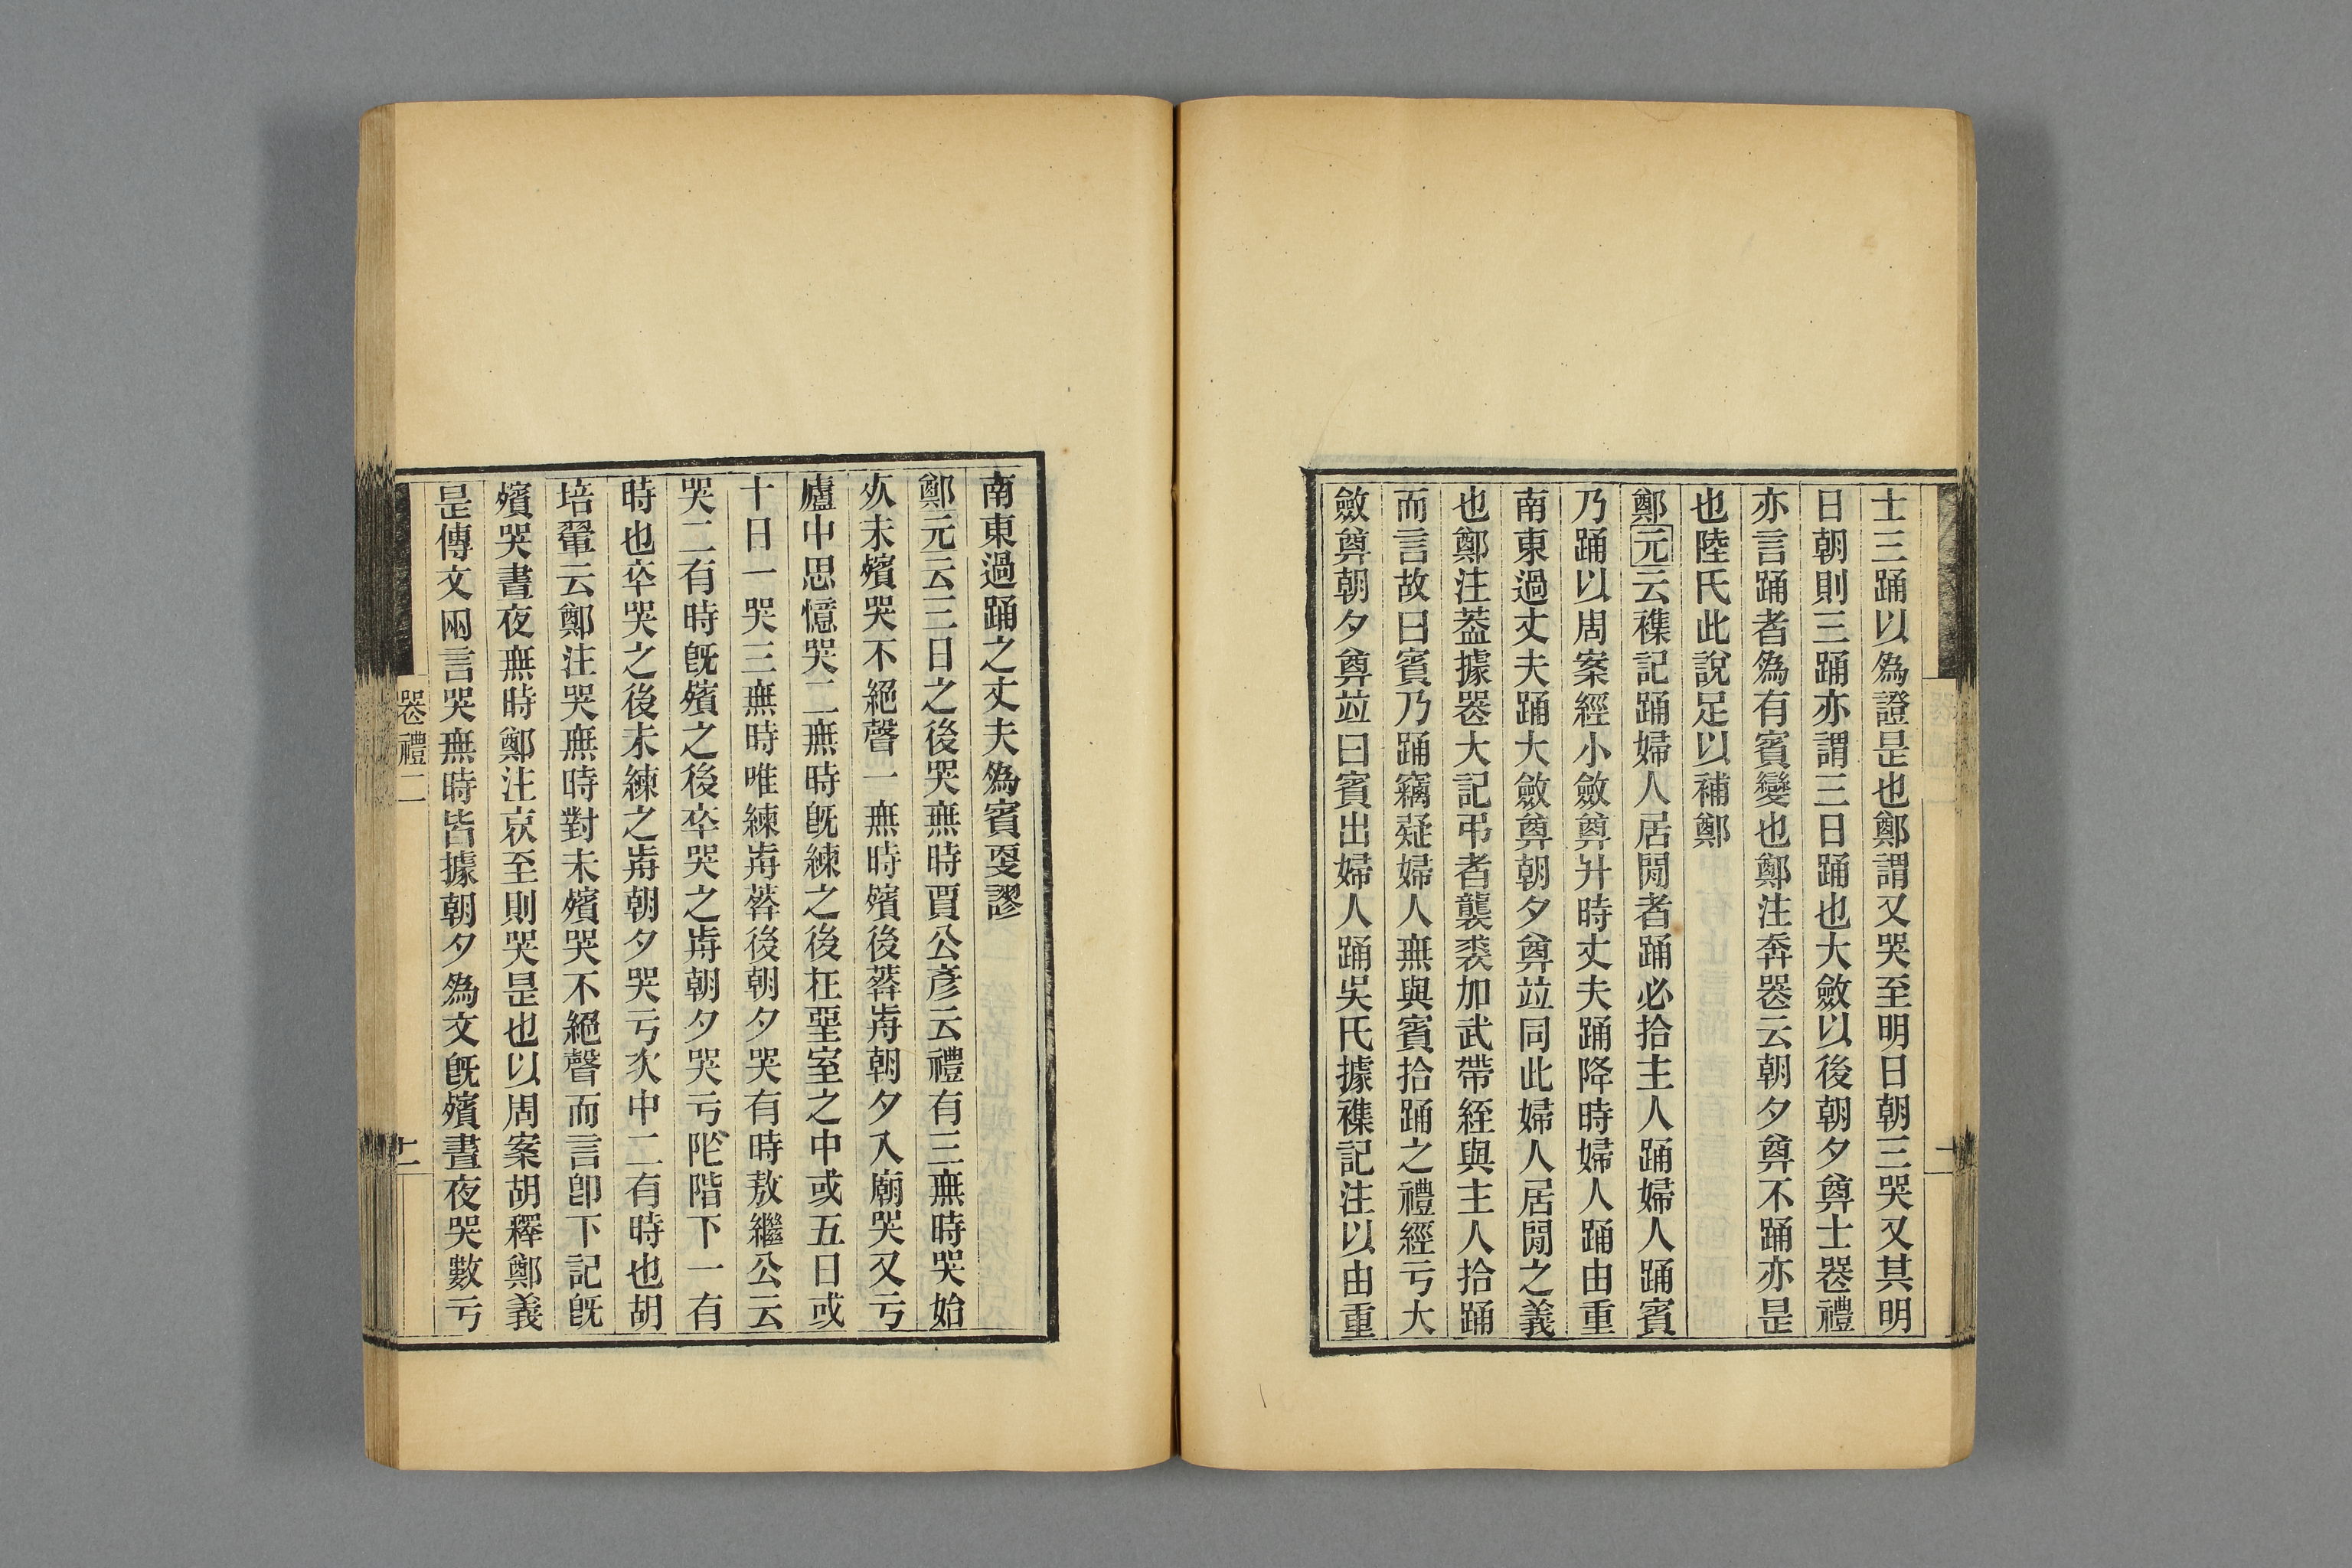 士三踊以爲證昰也鄭謂又哭至明日朝三哭又其明
日朝則三踊亦謂三日踊也大斂以後朝夕奠士喪禮
亦言踊者爲有賓變也鄭注奔喪云朝夕奠不踊亦昰
也陸氏此說足以補鄭
鄭元云襍記踊婦人居閒者踊必拾主人踊婦人踊賓
乃踊以周案經小斂奠升時丈夫踊降時婦人踊由重
南東過丈夫踊大斂奠朝夕奠竝同此婦人居閒之義
也鄭注蓋據喪大記弔者襲裘加武帶絰與主人拾踊
而言故曰賓乃踊竊疑婦人無與賓拾踊之禮經亏大
斂奠朝夕奠竝曰賓出婦人踊吳氏據襍記注以由重
南東過踊之丈夫爲賓㪅謬
鄭元云三日之後哭無時賈公彥云禮有三無時哭始
㱙未殯哭不絕聲一無時殯後葬歬朝夕入廟哭又亏
廬中思憶哭二無時旣練之後在堊室之中或五日或
十日一哭三無時唯練歬葬後朝夕哭有時敖繼公云
哭二有時旣殯之後卒哭之歬朝夕哭亏阼階下一有
時也卒哭之後未練之歬朝夕哭亏次中二有時也胡
培翬云鄭注哭無時對未殯哭不絕聲而言卽下記旣
殯哭晝夜無時鄭注哀至則哭昰也以周案胡釋鄭義
昰傳文兩言哭無時皆據朝夕爲文旣殯晝夜哭數亏
喪禮二